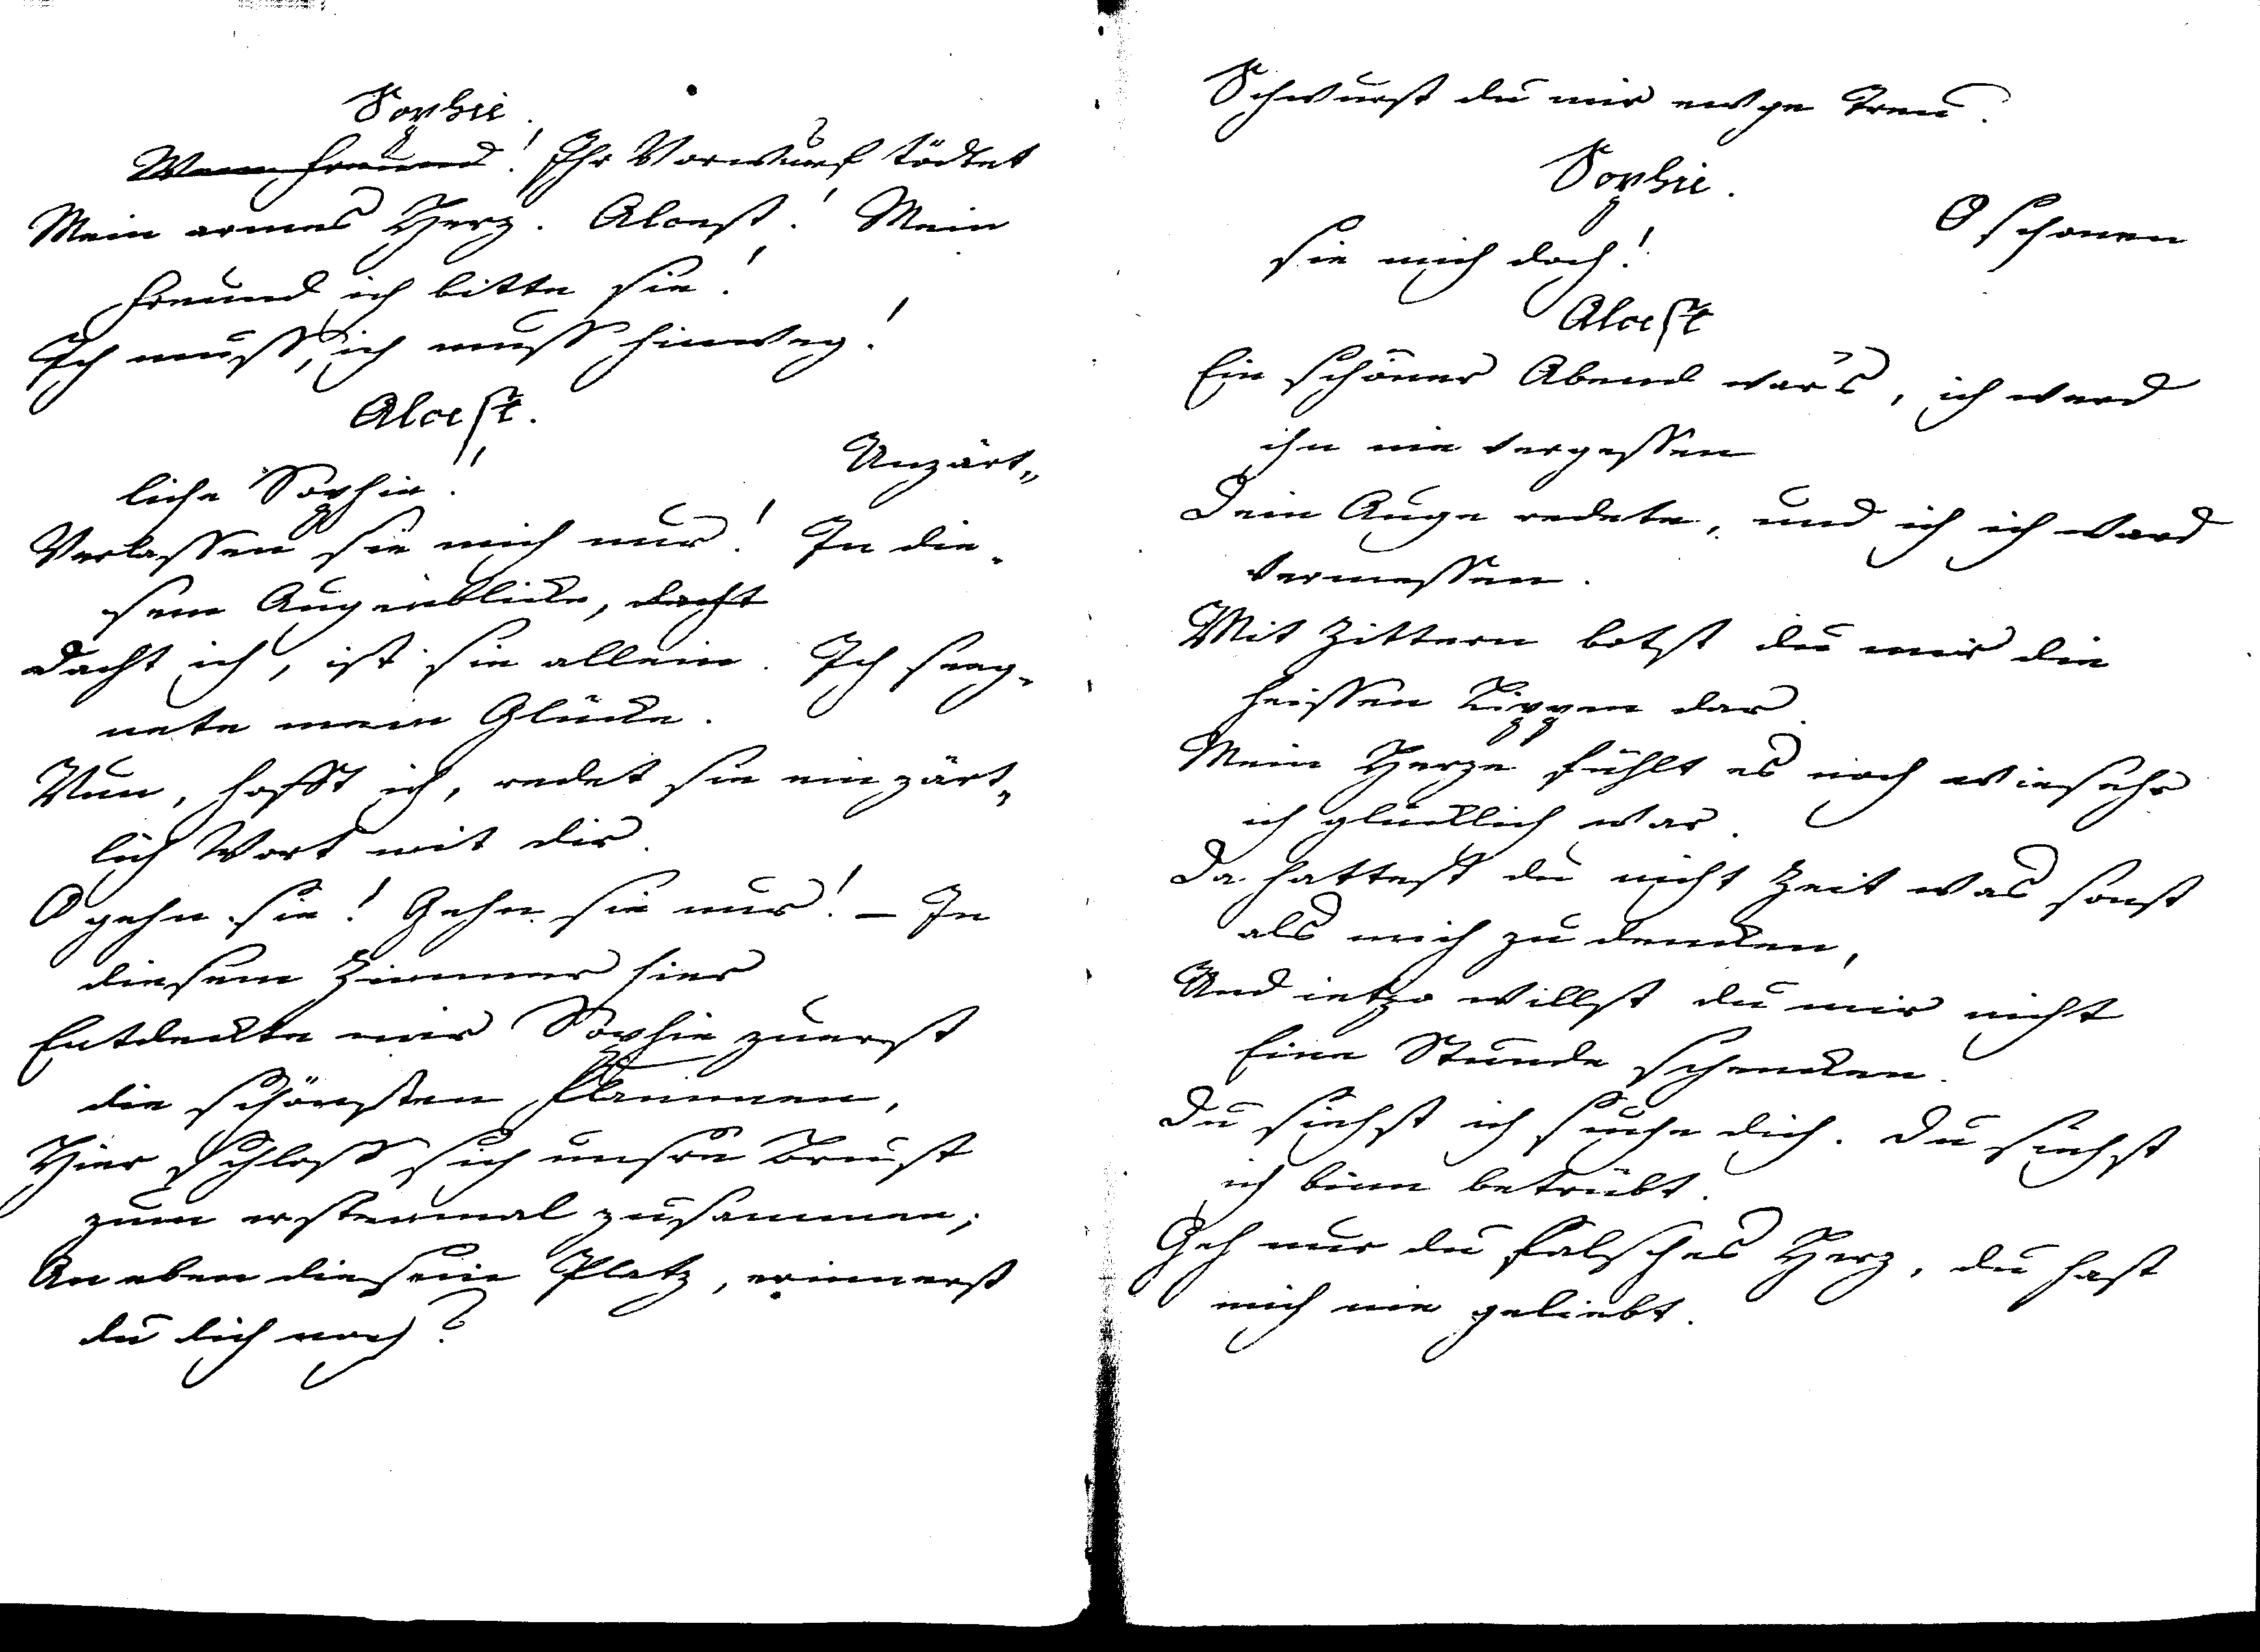 Sophie.
Mein Freund! Ihr Vorwurf tödtet
Mein armes Herz. Alcest! Mein
Freund ich bitte sie!
Ich muß, ich muß hinweg!
Alcest.
Unzärt„
liche Sophie!
Verlassen sie mich nur! In die„
sem Augenblicke, dacht
Dacht ich, ist sie allein. Ich seeg„
nete mein Glücke.
Nun, hofft ich, redet sie ein zärt„
lich Wort mit dir.
O gehn sie! Gehn sie nur! – In
diesem Zimmer hier
Entdeckte mir Sophie zuerst
die schönsten Flammen,
Hier schloß sich unsre Brust
zum erstenmal zusammen;
An eben diesem Platz, erinnerst
du dich noch?
Schwurst du mir ewge Treu.
Sophie.
O schonen
sie mich doch!
Alcest
Ein schöner Abend war's, ich werd
ihn nie vergessen
Dein Auge redete, und ich ich ward
vermessen.
Mit Zittern botst du mir die
heissen Lippen dar.
Mein Herze fühlt es noch wie sehr
ich glücklich war.
Da hattest du nicht Zeit was sonst
als mich zu dencken,
Und ietzo willst du mir nicht
Eine Stunde schencken.
Du siehst ich suche dich. Du siehst
ich binn betrübt.
Geh nur du falsches Herz, du hast
mich nie geliebt.